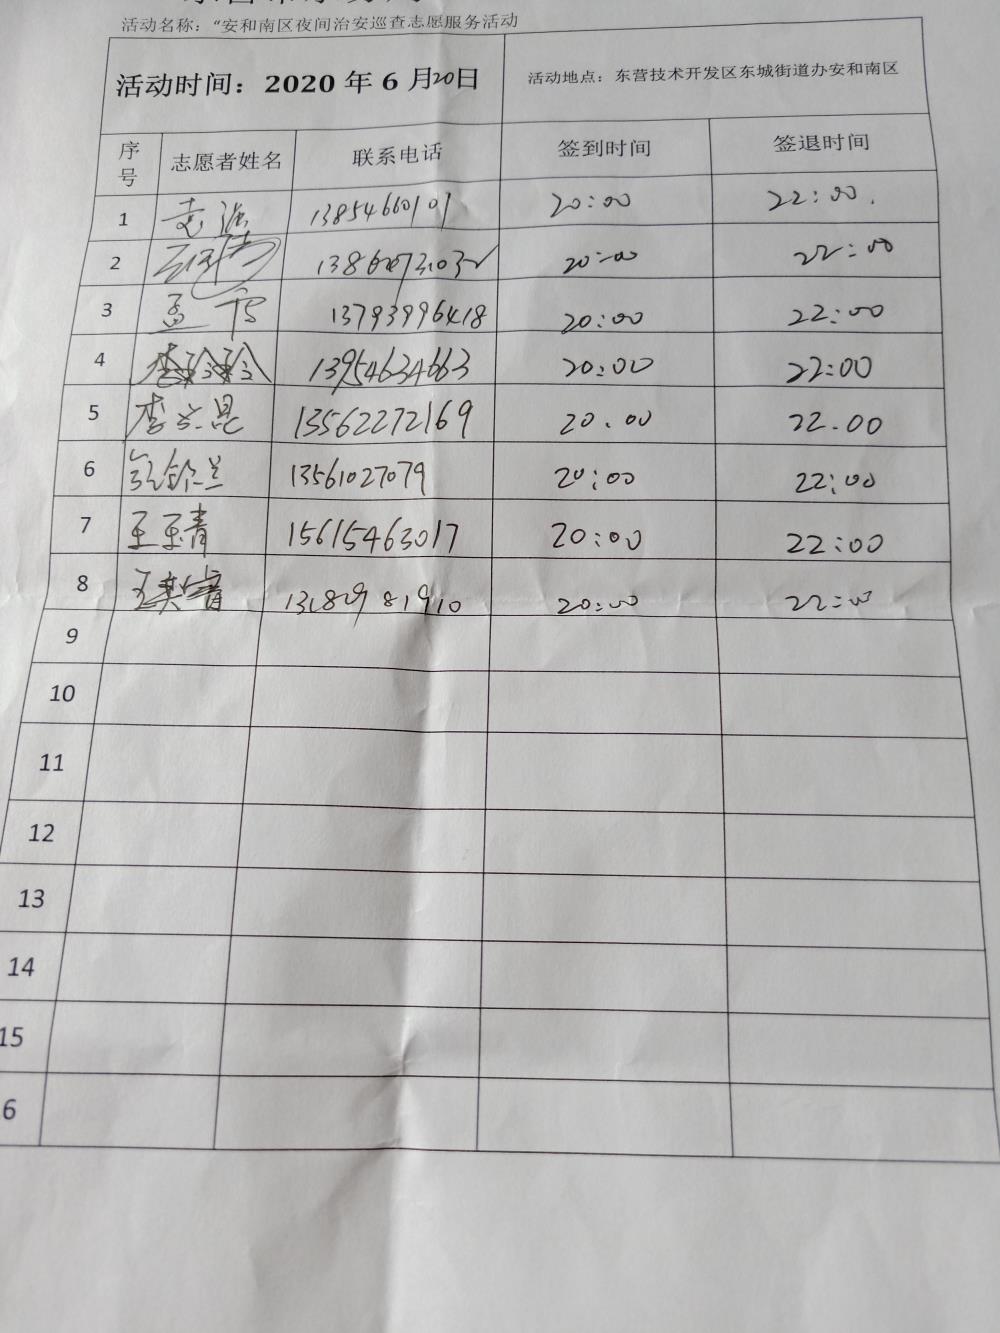 活动名称：“安和南区夜间治安巡查志愿服务活动
活动时间：2020 年 6 月20日 活动地点：东营技术开发区东城街道办安和南区
序号 志愿者姓名 联系电话 签到时间 签退时间
1 13854660101 20:00 22:00.
2 20:00 22:00
3 孟 13793996418 20:00 22:00
4 李玲玲 13954634663 20:00 22:00
5 李立昆 13562272169 20.00 22.00
6 13561027079 20:00 22:00
7 王玉青 15615463017 20:00 22:00
8 20:00 22:00
9
10
11
12
13
14
15
6